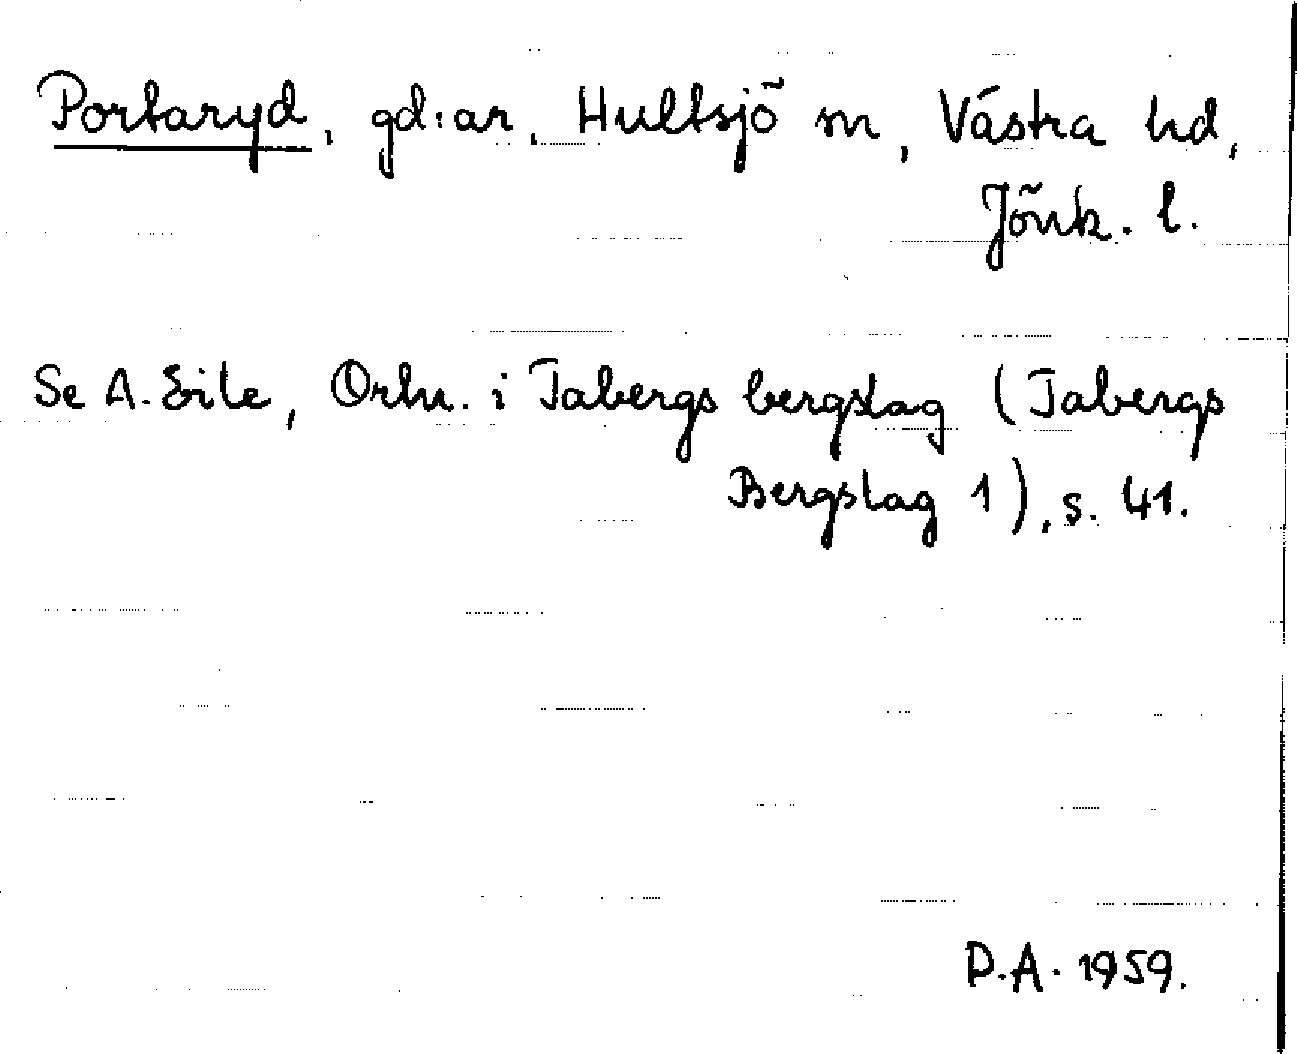 Portaryd, gd:ar, Hultsjö sn, Västra hd,
Jönk. l.
Se A. Eile, Ortn. i Tabergs bergslag (Tabergs
Bergslag 1), s. 41.
D.A. 1959.